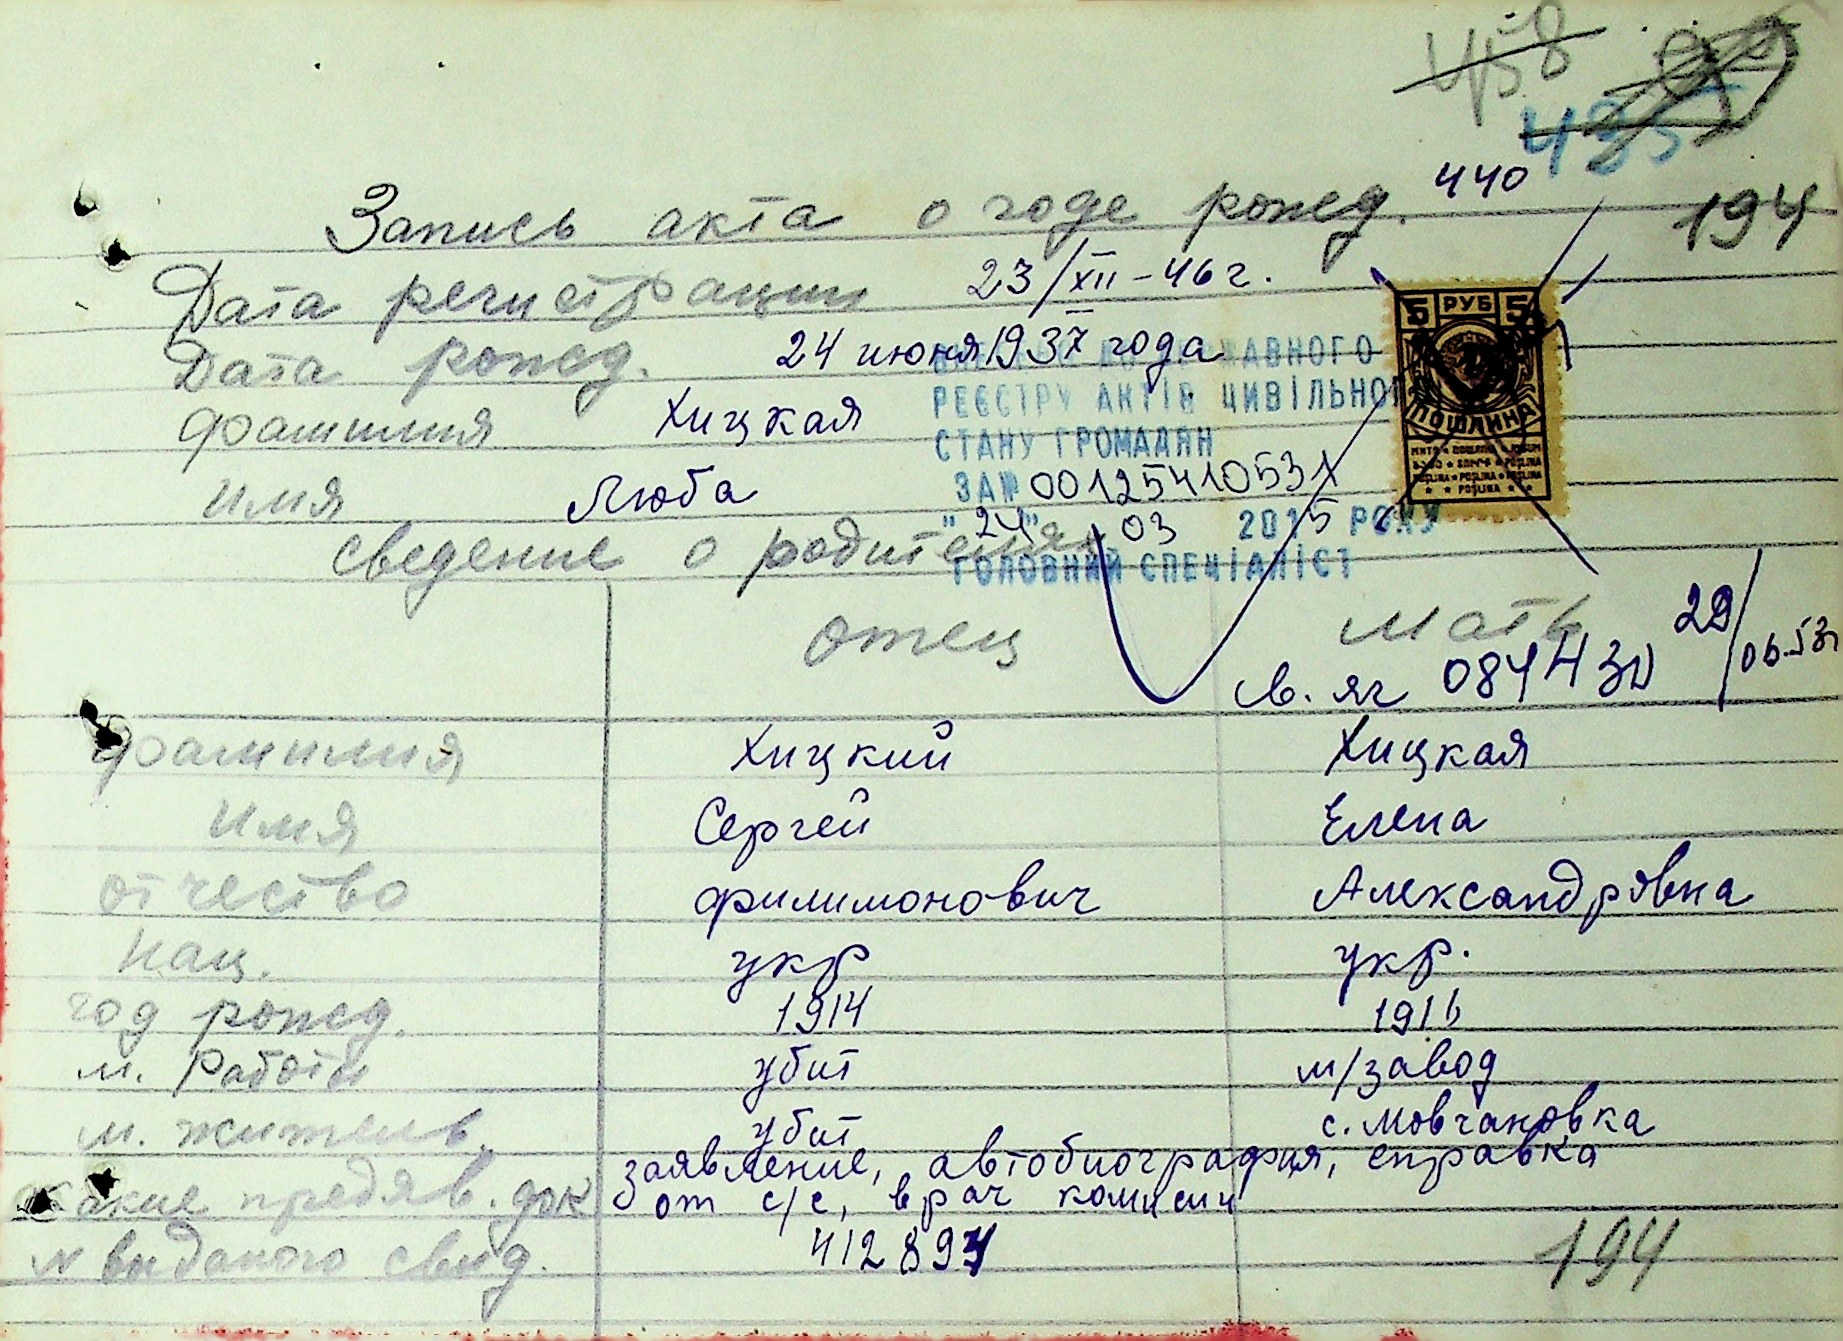 458
435
440
Запись акта о годе рожд.
194
Дата регистрации 23/XII-46 г.
5 РУБ 5
Дата рожд. 24 июня 1937 года
ДЕРЖАВНОГО
фамилия Хицкая
РЕЄСТРУ АКТІВ ЦИВІЛЬНОГО
ПОШЛИНА
СТАНУ ГРОМАДЯН
имя Люба
ЗА № 00125410531
"24" 03 2015 РОКУ
сведение о родителях
ГОЛОВНИЙ СПЕЦІАЛІСТ
отец мать
св. яг 084430 29/06.53г
фамилия Хицкий Хицкая
имя Сергей Елена
отчество филимонович Александровна
нац. укр укр.
год рожд. 1914 1916
м. работы убит м/завод
м. жительв. убит с. Мовчановка
какие предяв. док заявление, автобиография, справка
от с/с, врач комисии
N выданого свид. 412894
194